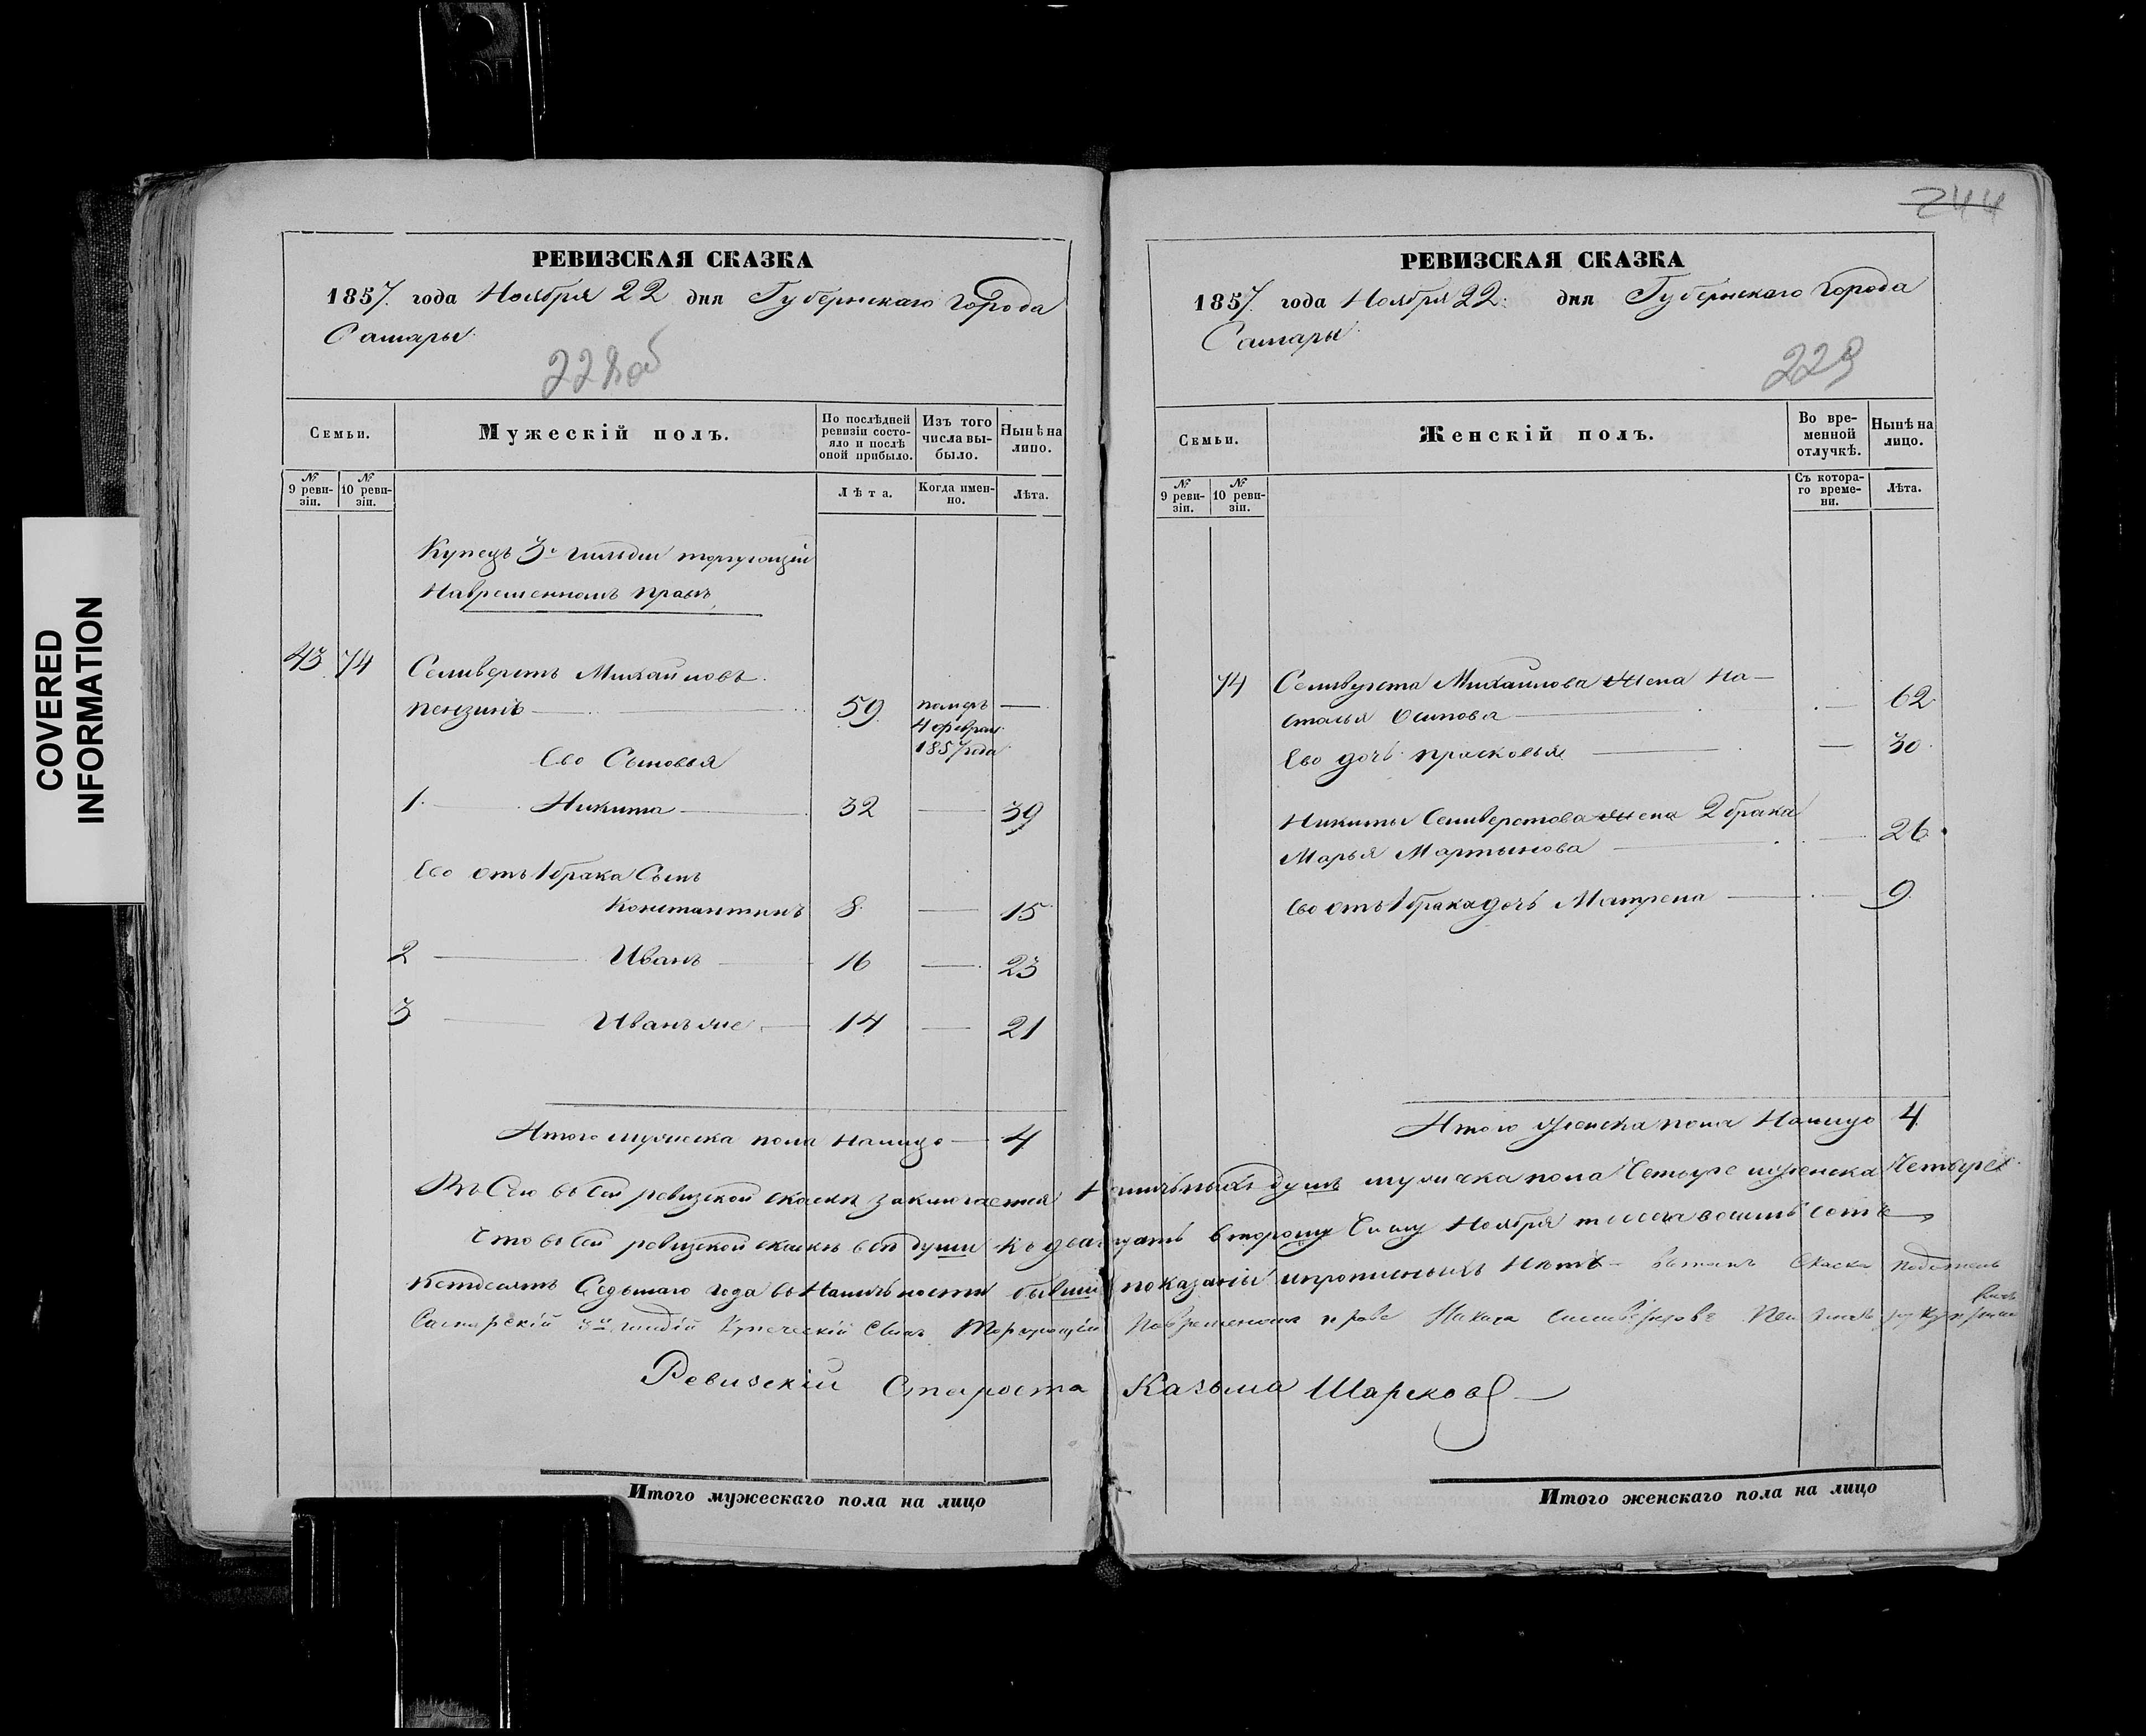 COVERED
INFORMATION
РЕВИЗСКАЯ СКАЗКА
1857. года Ноября 22 дня Губернскаго города
Самары
228об
Семьи.
Мужескій полъ.
По послѣдней ревизіи состояло и послѣ оной прибыло.
Изъ того числа выбыло.
Нынѣ на лицо.
№ 9 ревизіи.
№ 10 ревизіи.
Лѣта.
Когда именно.
Лѣта.
Купецъ 3й гильдіи торгующій
Навременномъ правѣ
43 74 Селиверстъ Михайловъ
пензинъ — 59 померъ —
4 феврал.
1857 года
Ево Сыновья
1. — Никита — 32 — 39
Ево отъ 1 брака Сынъ
Константинъ 8 — 15
2 — Иванъ — 16 — 23
3 — Иванъ же — 14 — 21
Итого мужеска пола Налицо — 4
244
РЕВИЗСКАЯ СКАЗКА
1857. года Ноября 22. дня Губернскаго города
Самары
229
Семьи.
Женскій полъ.
Во временной отлучкѣ.
Нынѣ на лицо.
№ 9 ревизіи.
№ 10 ревизіи.
Съ котораго времени.
Лѣта.
74 Селиверста Михаилова жена На—
сталья Осипова — 62
Ево дочь прасковья — — 30
Никиты Селиверстова жена 2 брака
Марья Мартынова — — 26
Ево отъ 1 брака дочь Матрена — 9
Итого женска пола Налицо 4
всей ревизской скаскѣ заключается Наличныхъ душъ мужичка пола Четыре иженска Четыре
Что всей ревизской скаскѣ всѣ души къ двацать второму Числу Ноября тысеча восимь сотъ
петдесятъ Седьмаго года въ Наличьности бывши показаніи ипротиеныхъ Нѣтъ
Самарскій 3й гилдій Купеческій Сынъ Торгующій
Ревизскій Староста Казьма Шарсковъ
Итого мужескаго пола на лицо
Итого женскаго пола на лицо